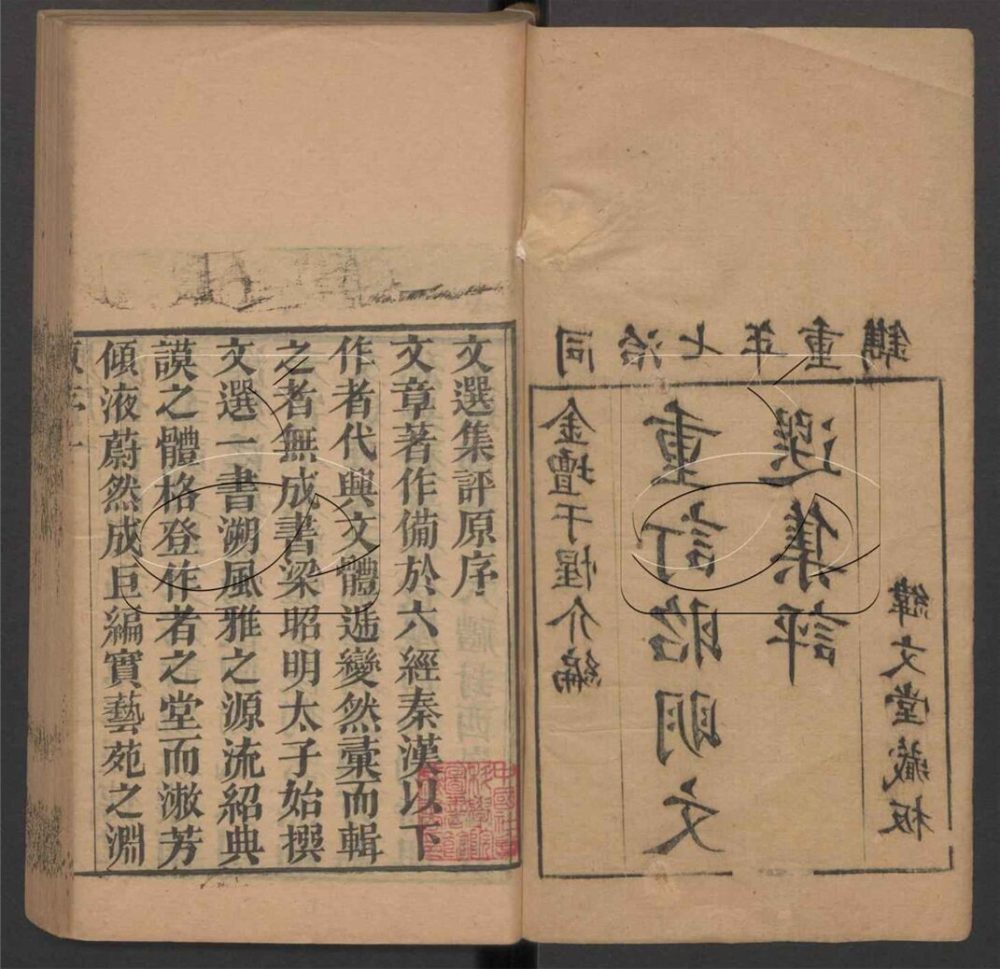 同治七年重鐫
金壇于惺介編
重訂昭明文
選集評
緯文堂藏板
文選集評原序
文章著作備於六經秦漢以下
作者代興文體遞變然彙而輯
之者無成書梁昭明太子始撰
文選一書溯風雅之源流紹典
謨之體格登作者之堂而漱芳
傾液蔚然成巨編實藝苑之淵